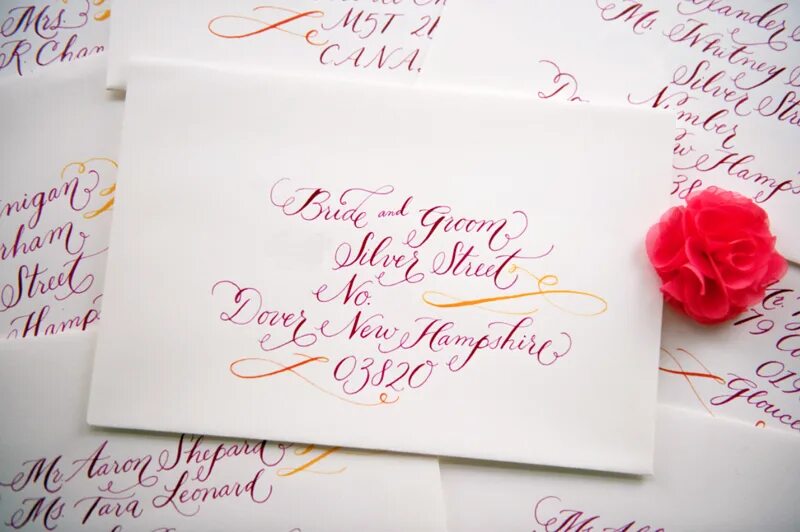 Mrs.
R. Chan
M5T
CANA
Ms. Whitney
Silver Stre
Number
New Hampshi
038
nigan
rham
Street
Hamp
Bride and Groom
Silver Street
No.
Dover New Hampshire
03820
79 Co
019
Glouce
Mr. Aaron Shepard
Ms. Tara Leonard